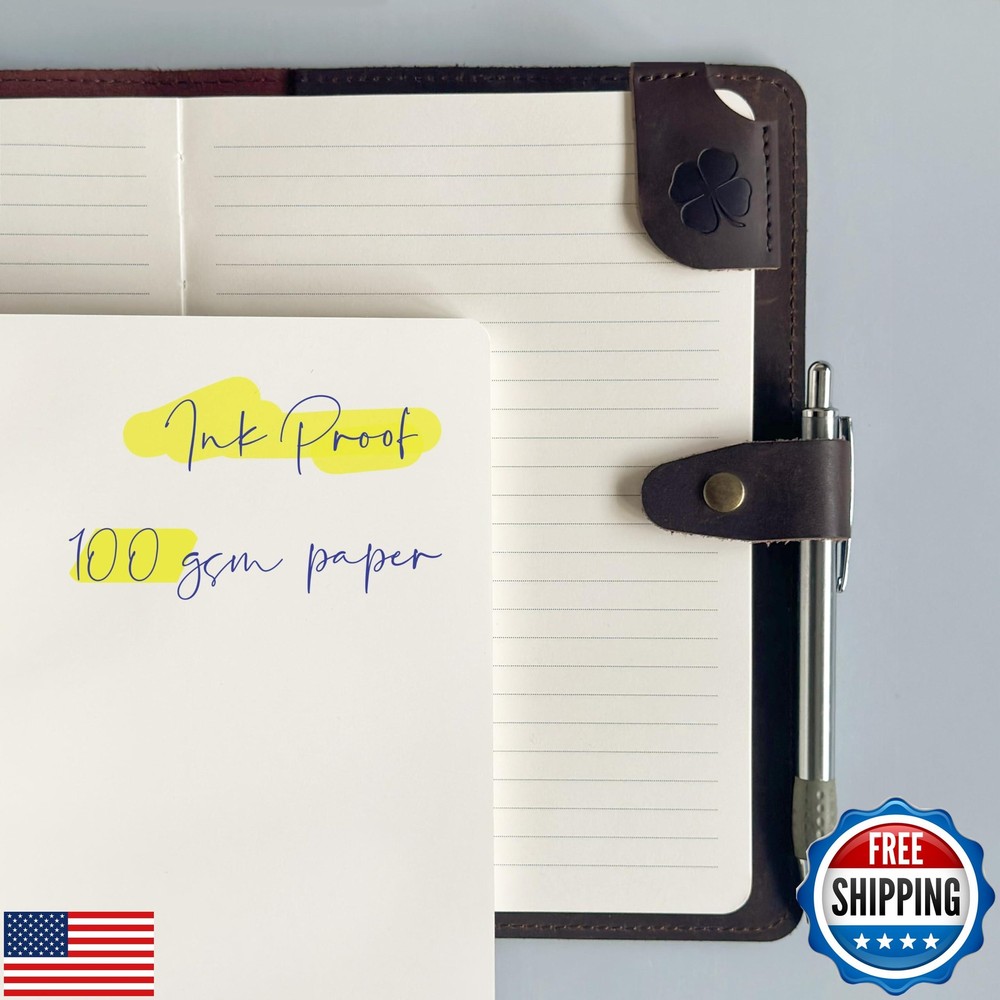 Ink Proof
100 gsm paper
FREE
SHIPPING